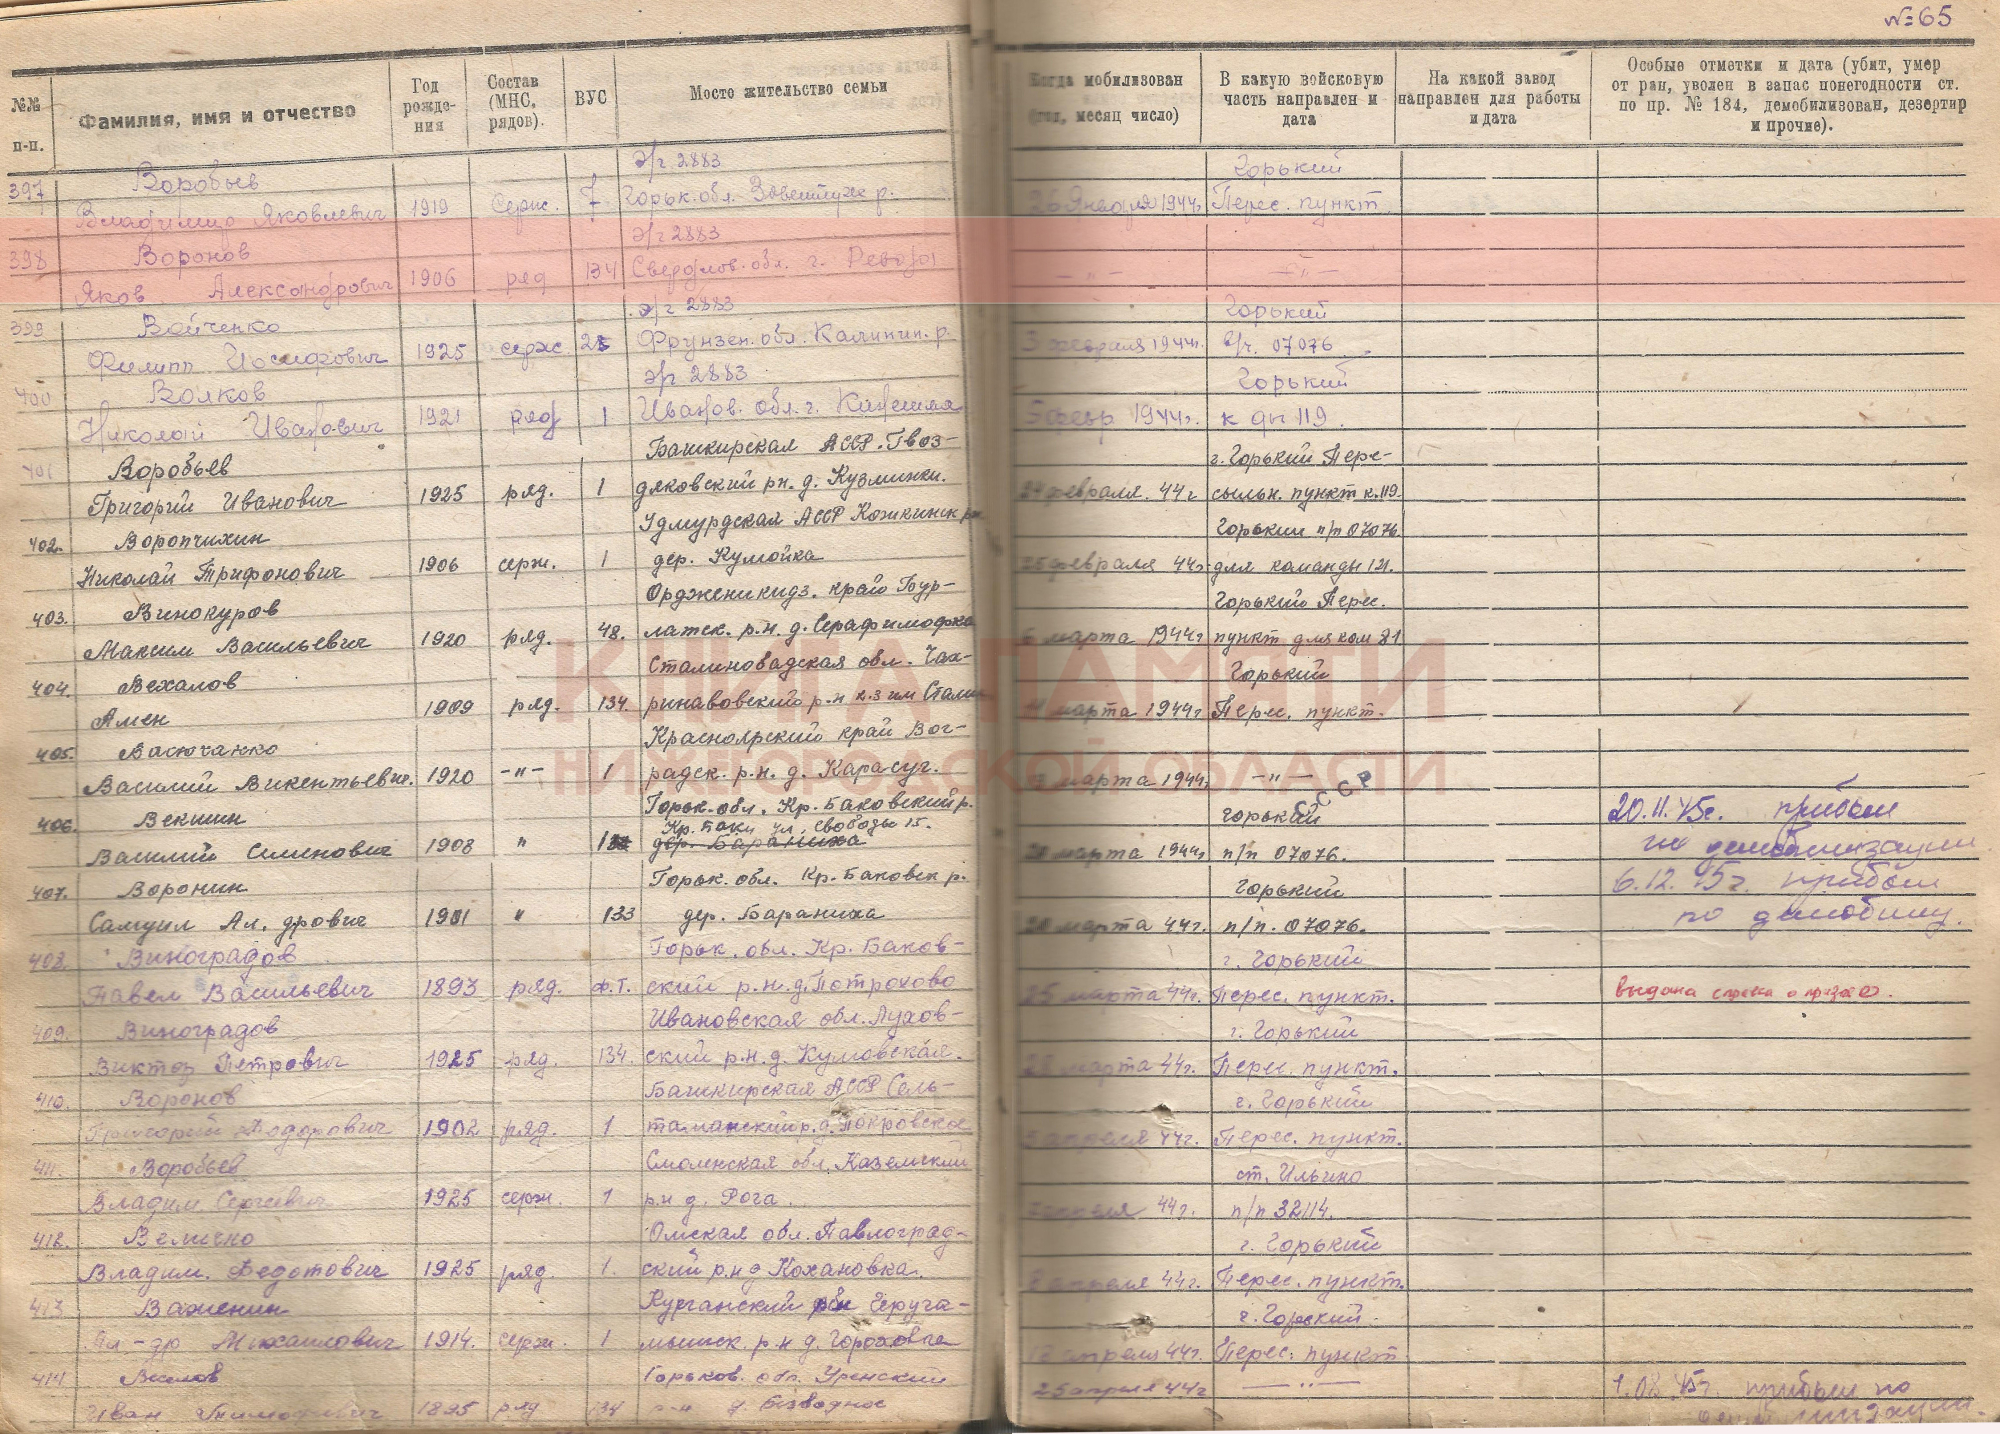 № 65
№№ п-п.
Фамилия, имя и отчество
Год рожде-ния
Состав (МНС, рядов).
ВУС
Место жительство семьи
Когда мобилизован (год, месяц число)
В какую войсковую часть направлен и дата
На какой завод направлен для работы и дата
Особые отметки и дата (убит, умер от ран, уволен в запас понегодности ст. по пр. № 184, демобилизован, дезертир и прочие).
397 Воробьев э/г 2883 Горький
Владимир Яковлевич 1919 Серж. 7 Горьк. обл. р. 26 Января 1944г Перес. пункт
398 Воронов э/г 2883
Яков Александрович 1906 ряд 134 Свердлов. обл. г. Ревда — " — — " —
399 Войченко э/г 2883 Горький
Филипп Иосифович 1925 серж 25 Фрунзен. обл. Калинин. р. 3 февраля 1944г. в/ч. 07076
400 Волков э/г 2883 Горький
Николай Иванович 1921 ряд 1 Иванов. обл. г. Кинешма 5 февр 1944г. к ды 119.
401 Воробьев Башкирская АССР. Гвоз- г. Горький Пере-
Григорий Иванович 1925 ряд. 1 дяковский рн. д. Кузминки. 24 февраля. 44г сыльн. пункт к. 119.
402. Воропчихин Удмурдская АССР Кожкинск рн Горький п/п 07076
Николай Трифонович 1906 серж. 1 дер. Кумойка 25 февраля 44г. для команды 121.
403. Винокуров Ордженикидз. край Бур- Горький Перес.
Максим Васильевич 1920 ряд. 48. латск. р.н. д. Серафимофка 6 марта 1944г пункт для ком 81
404. Вехалов Сталиновадская обл. Чах- Горький
Амен 1909 ряд. 134. ринавовский р-н к.з им Сталин 11 марта 1944г Перес. пункт.
405. Васючанко Красноярский край Бог-
Василий Викентьевич. 1920 -"- 1 радск. р.н. д. Карасуг. марта 1944г — " —
406. Векшин Горьк. обл. Кр. Баковский р. Горький СССР 20.11.45г. прибыл
Кр. Баки ул. Свободы 15.
Василий Семенович 1908 " дер. Бараниха 20 марта 1944г п/п 07076. по демобилизации
407. Воронин Горьк. обл. Кр. Баковск р. Горький 6.12.45г. прибыл
Самуил Ал. дрович 1901 " 133 дер. Бараниха 20 марта 44г. п/п. 07076. по демобилиз.
408. Виноградов Горьк. обл. Кр. Баков- г. Горький
Павел Васильевич 1893 ряд. Ф.Т. ский р.н. д. Потрохово 25 марта 44г. Перес. пункт. выдана справка о призове.
409. Виноградов Ивановская обл. Лухов- г. Горький
Виктор Петрович 1925 ряд. 134. ский р.н. д. Кумовская. 28 марта 44г. Перес. пункт.
410. Воронов Башкирская АССР Сель- г. Горький
Григорий Федорович 1902 ряд. 1 таманский р. д. Покровское 5 апреля 44г. Перес. пункт.
411. Воробьев Смоленская обл. Каземский ст. Ильино
Владим. Сергеевич 1925 серж. 1 р.н д. Рога. апреля 44г. п/п 32114.
412. Величко Омская обл. Павлоград- г. Горький
Владим. Федотович 1925 ряд. 1. ский р.н д Кохановка. 8 апреля 44г. Перес. пункт.
413 Важенин Курганский г. Горький.
Ал-др Михаилович 1914. серж. 1 мышск. р.н д. 12 апреля 44г. Перес. пункт
414 Горьков. обл. Уренский 25 апреля 44г — " — 1.08.45г. прибыл по
Иван Тимофеевич 1895 ряд 134 р-н д. Безводное
КНИГА ПАМЯТИ
НИЖЕГОРОДСКОЙ ОБЛАСТИ